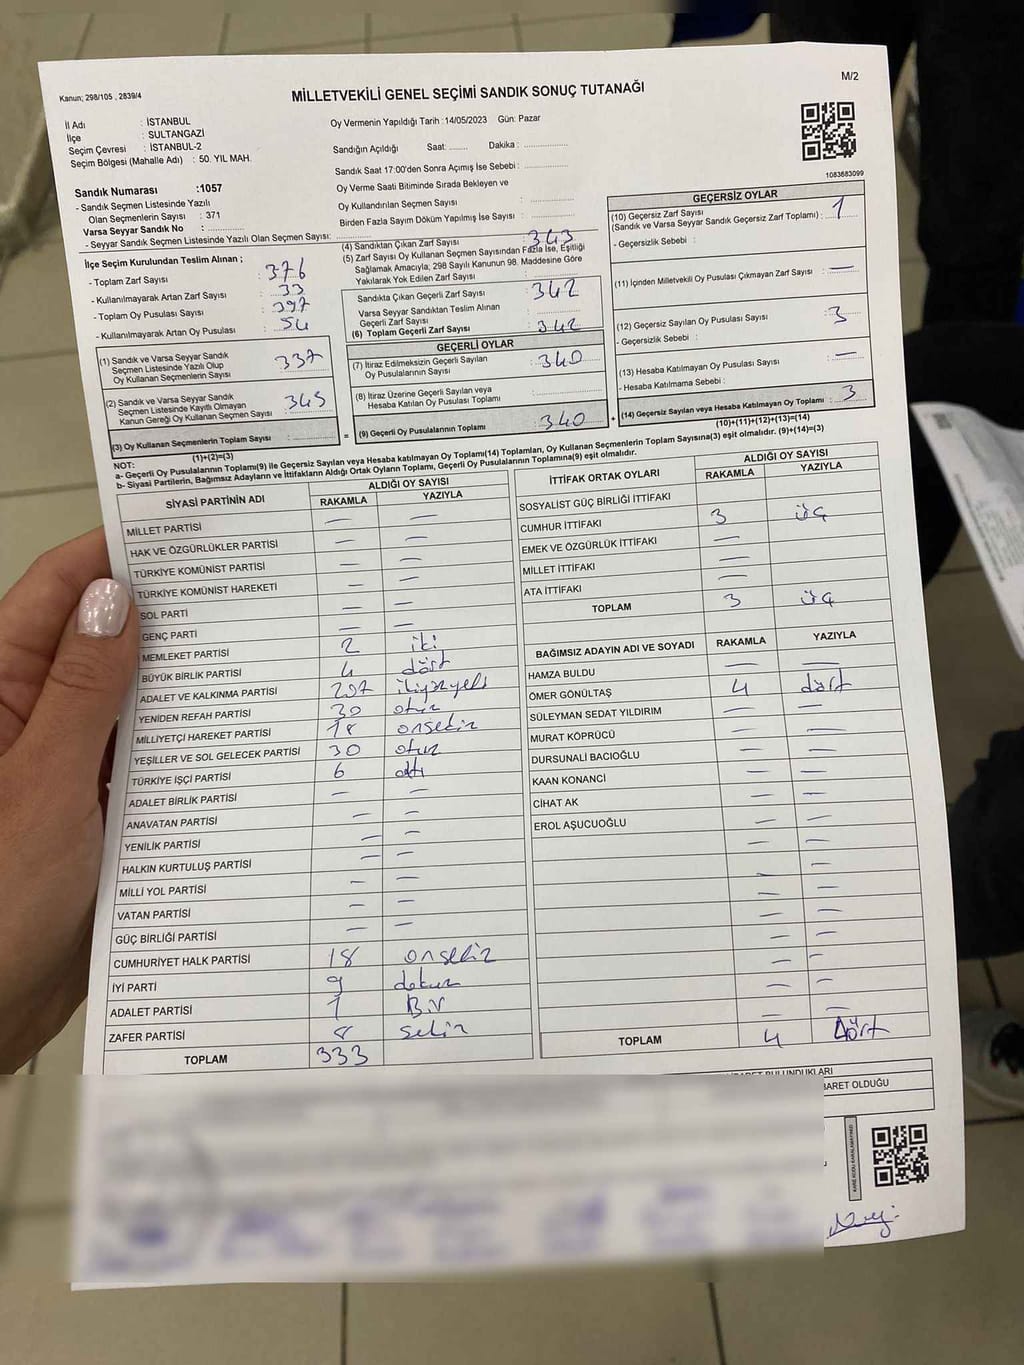 M/2
Kanun; 298/105 , 2839/4
MİLLETVEKİLİ GENEL SEÇİMİ SANDIK SONUÇ TUTANAĞI
İl Adı : İSTANBUL
İlçe : SULTANGAZİ
Seçim Çevresi : İSTANBUL-2
Seçim Bölgesi (Mahalle Adı) : 50. YIL MAH.
Sandık Numarası :1057
- Sandık Seçmen Listesinde Yazılı
Olan Seçmenlerin Sayısı : 371
Varsa Seyyar Sandık No :
- Seyyar Sandık Seçmen Listesinde Yazılı Olan Seçmen Sayısı:
Oy Vermenin Yapıldığı Tarih : 14/05/2023 Gün: Pazar
Sandığın Açıldığı Saat: Dakika :
Sandık Saat 17:00'den Sonra Açımış İse Sebebi :
Oy Verme Saati Bitiminde Sırada Bekleyen ve
Oy Kullandırılan Seçmen Sayısı :
Birden Fazla Sayım Döküm Yapılmış İse Sayısı :
1083683099
İlçe Seçim Kurulundan Teslim Alınan ;
- Toplam Zarf Sayısı : 376
- Kullanılmayarak Artan Zarf Sayısı : 33
- Toplam Oy Pusulası Sayısı : 397
- Kullanılmayarak Artan Oy Pusulası : 54
(1) Sandık ve Varsa Seyyar Sandık
Seçmen Listesinde Yazılı Olup
Oy Kullanan Seçmenlerin Sayısı : 337
(2) Sandık ve Varsa Seyyar Sandık
Seçmen Listesinde Kayıtlı Olmayan
Kanun Gereği Oy Kullanan Seçmen Sayısı : 345
(3) Oy Kullanan Seçmenlerin Toplam Sayısı :
(1)+(2)=(3)
(4) Sandıktan Çıkan Zarf Sayısı : 343
(5) Zarf Sayısı Oy Kullanan Seçmen Sayısından Fazla İse, Eşitliği
Sağlamak Amacıyla; 298 Sayılı Kanunun 98. Maddesine Göre
Yakılarak Yok Edilen Zarf Sayısı :
Sandıkta Çıkan Geçerli Zarf Sayısı : 342
Varsa Seyyar Sandıktan Teslim Alınan
Geçerli Zarf Sayısı :
(6) Toplam Geçerli Zarf Sayısı : 342
GEÇERLİ OYLAR
(7) İtiraz Edilmeksizin Geçerli Sayılan
Oy Pusulalarının Sayısı : 340
(8) İtiraz Üzerine Geçerli Sayılan veya
Hesaba Katılan Oy Pusulası Toplamı :
= (9) Geçerli Oy Pusulalarının Toplamı : 340 +
GEÇERSİZ OYLAR
(10) Geçersiz Zarf Sayısı
(Sandık ve Varsa Seyyar Sandık Geçersiz Zarf Toplamı) : 1
- Geçersizlik Sebebi :
(11) İçinden Milletvekili Oy Pusulası Çıkmayan Zarf Sayısı : —
(12) Geçersiz Sayılan Oy Pusulası Sayısı : 3
- Geçersizlik Sebebi :
(13) Hesaba Katılmayan Oy Pusulası Sayısı : —
- Hesaba Katılmama Sebebi :
(14) Geçersiz Sayılan veya Hesaba Katılmayan Oy Toplamı : 3
(10)+(11)+(12)+(13)=(14)
NOT:
a- Geçerli Oy Pusulalarının Toplamı(9) ile Geçersiz Sayılan veya Hesaba katılmayan Oy Toplamı(14) Toplamları, Oy Kullanan Seçmenlerin Toplam Sayısına(3) eşit olmalıdır. (9)+(14)=(3)
b- Siyasi Partilerin, Bağımsız Adayların ve İttifakların Aldığı Ortak Oyların Toplamı, Geçerli Oy Pusulalarının Toplamına(9) eşit olmalıdır.
SİYASİ PARTİNİN ADI ALDIĞI OY SAYISI
RAKAMLA YAZIYLA
MİLLET PARTİSİ — —
HAK VE ÖZGÜRLÜKLER PARTİSİ — —
TÜRKİYE KOMÜNİST PARTİSİ — —
TÜRKİYE KOMÜNİST HAREKETİ — —
SOL PARTİ — —
GENÇ PARTİ — —
MEMLEKET PARTİSİ 2 iki
BÜYÜK BİRLİK PARTİSİ 4 dört
ADALET VE KALKINMA PARTİSİ 207 ikiyüzyedi
YENİDEN REFAH PARTİSİ 30 otuz
MİLLİYETÇİ HAREKET PARTİSİ 18 onsekiz
YEŞİLLER VE SOL GELECEK PARTİSİ 30 otuz
TÜRKİYE İŞÇİ PARTİSİ 6 altı
ADALET BİRLİK PARTİSİ — —
ANAVATAN PARTİSİ — —
YENİLİK PARTİSİ — —
HALKIN KURTULUŞ PARTİSİ — —
MİLLİ YOL PARTİSİ — —
VATAN PARTİSİ — —
GÜÇ BİRLİĞİ PARTİSİ — —
CUMHURİYET HALK PARTİSİ 18 onsekiz
İYİ PARTİ 9 dokuz
ADALET PARTİSİ 1 Bir
ZAFER PARTİSİ 8 sekiz
TOPLAM 333
İTTİFAK ORTAK OYLARI ALDIĞI OY SAYISI
RAKAMLA YAZIYLA
SOSYALİST GÜÇ BİRLİĞİ İTTİFAKI
CUMHUR İTTİFAKI 3 üç
EMEK VE ÖZGÜRLÜK İTTİFAKI —
MİLLET İTTİFAKI —
ATA İTTİFAKI —
TOPLAM 3 üç
BAĞIMSIZ ADAYIN ADI VE SOYADI RAKAMLA YAZIYLA
HAMZA BULDU — —
ÖMER GÖNÜLTAŞ 4 dört
SÜLEYMAN SEDAT YILDIRIM — —
MURAT KÖPRÜCÜ — —
DURSUNALİ BACIOĞLU — —
KAAN KONANCİ — —
CİHAT AK — —
EROL AŞUCUOĞLU — —
TOPLAM 4 Dört
BULUNDUKLARI
BARET OLDUĞU